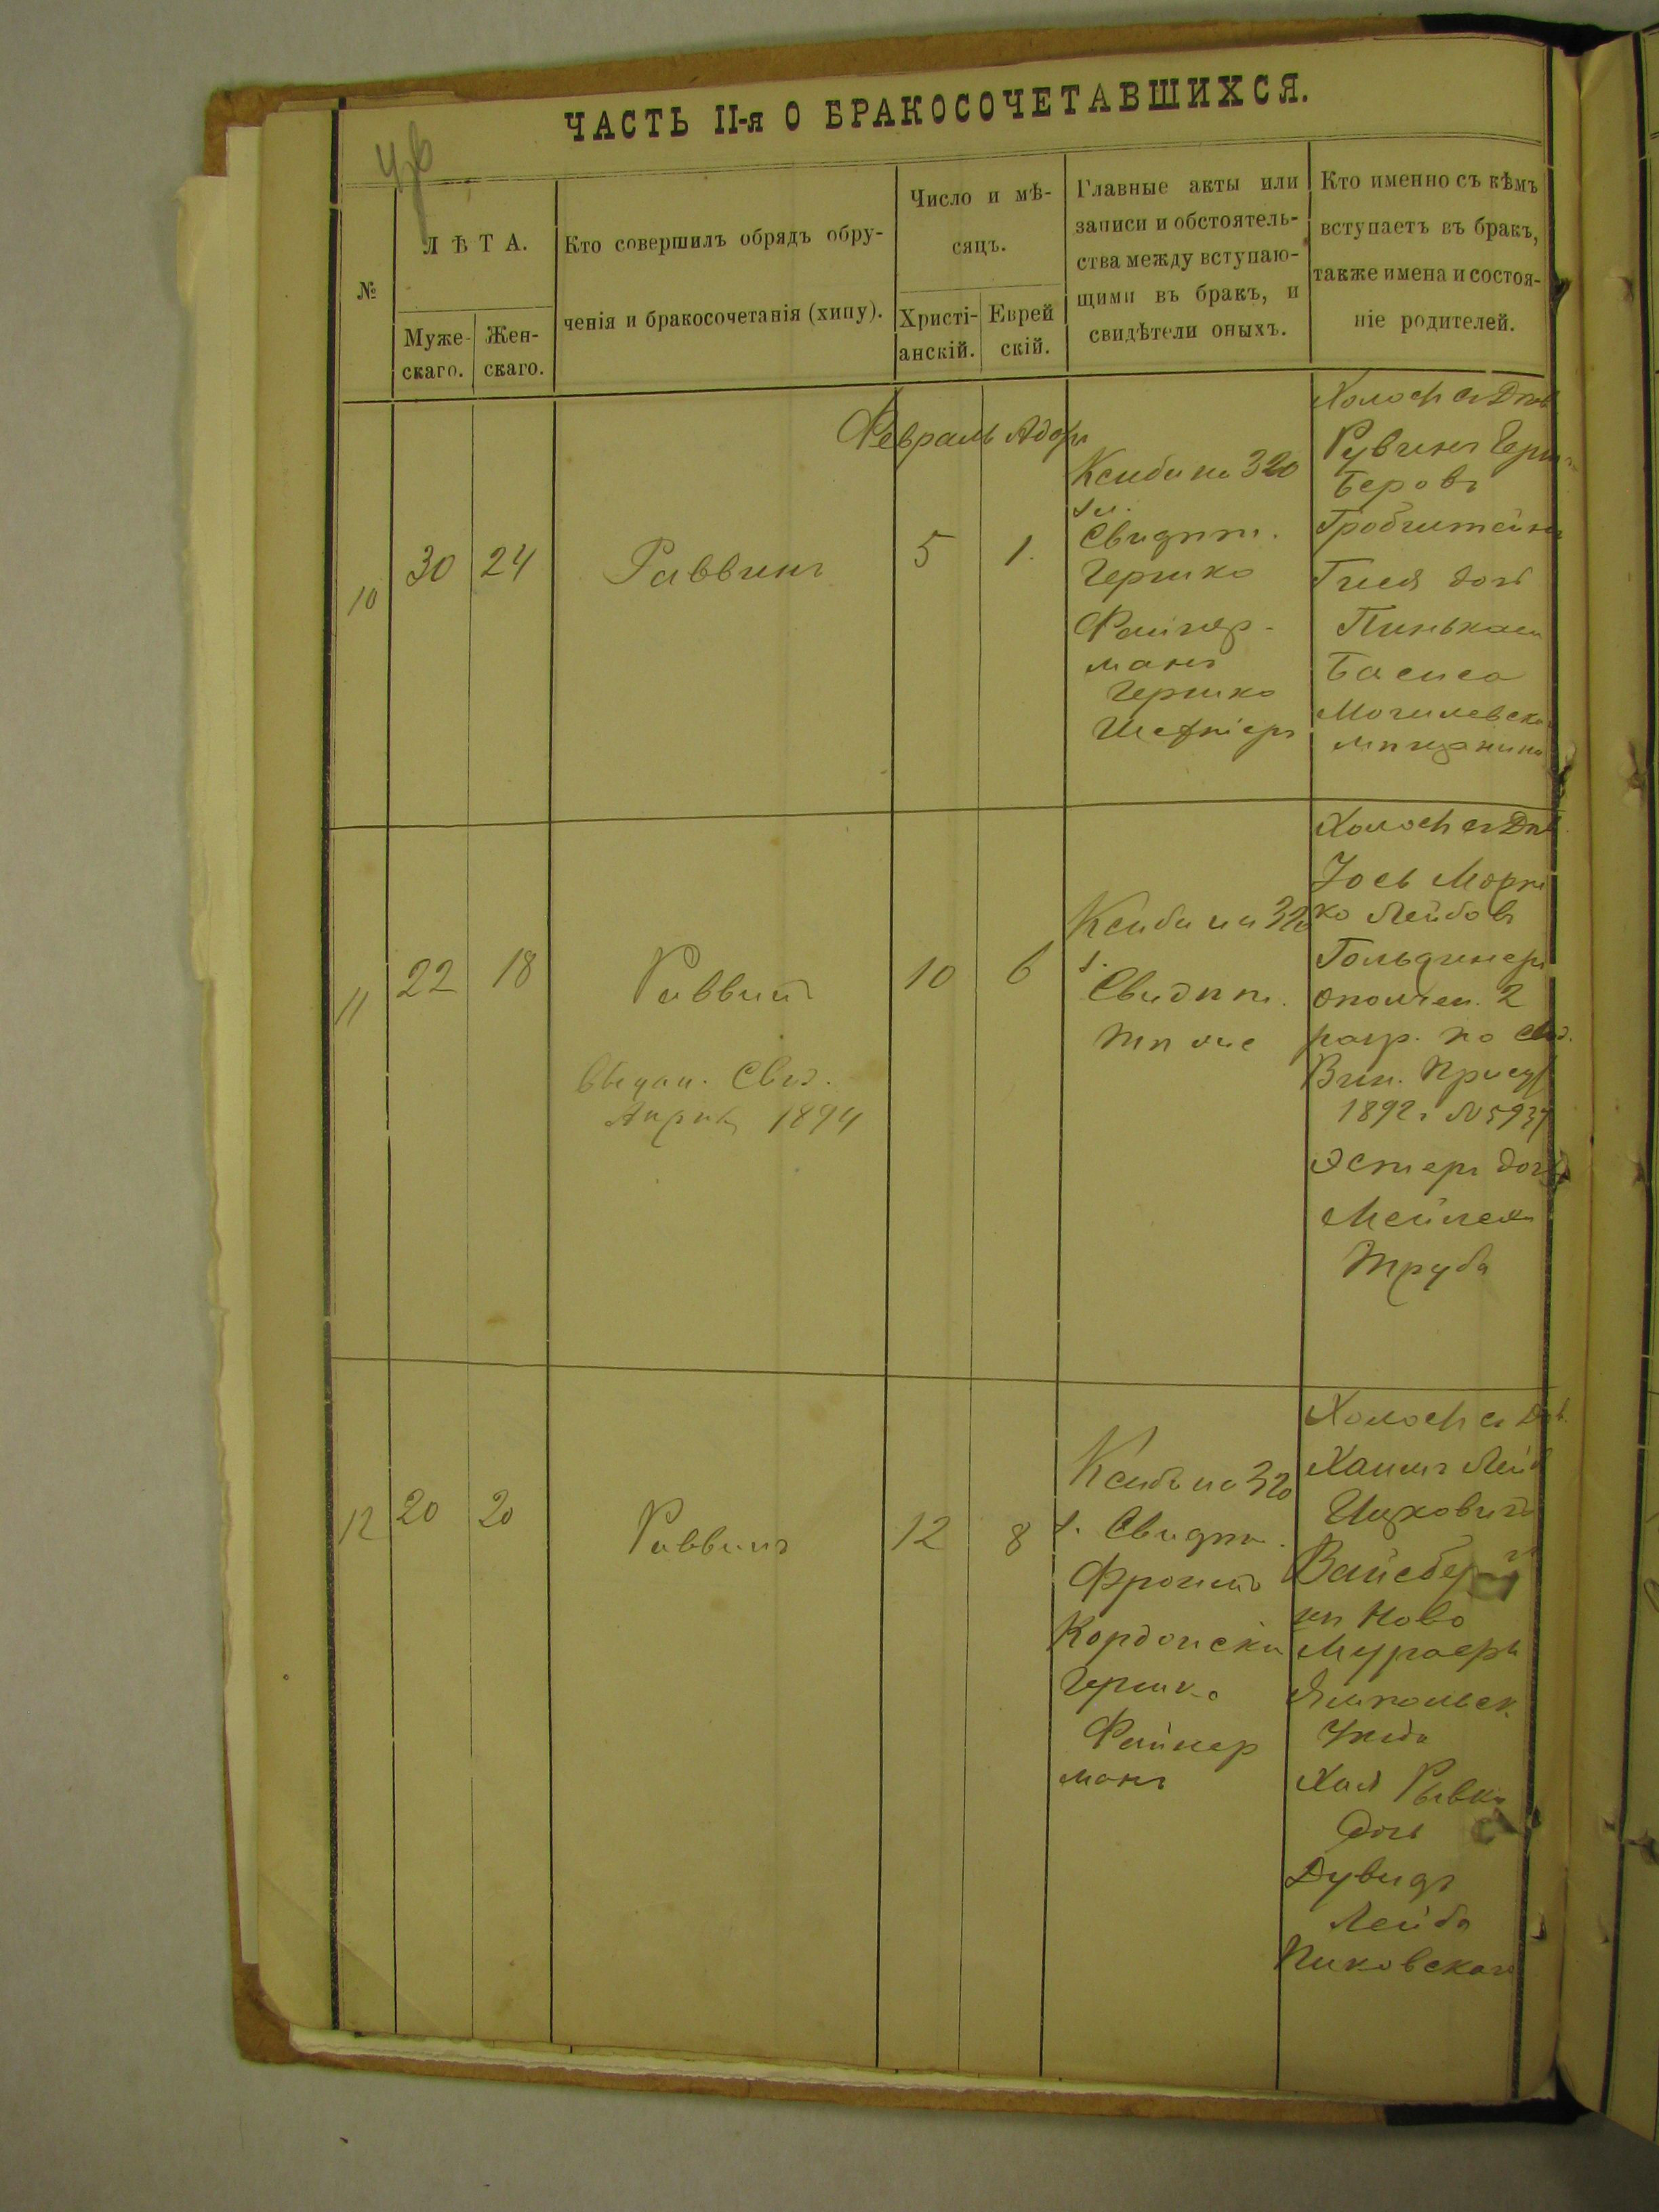 ЧАСТЬ II-я О БРАКОСОЧЕТАВШИХСЯ.
№
ЛѢТА.
Муже-
скаго.
Жен-
скаго.
Кто совершилъ обрядъ обру-
ченія и бракосочетанія (хипу).
Число и мѣ-
сяцъ.
Христі-
анскій.
Еврей
скій.
Главные акты или
записи и обстоятель-
ства между вступаю-
щими въ бракъ, и
свидѣтели оныхъ.
Кто именно съ кѣмъ
вступаетъ въ бракъ,
также имена и состоя-
ніе родителей.
Февраль Адаръ
10
30
24
Раввинъ
5
1.
Ксиба на 320
Свидѣт.
Гершко
Файнер-
манъ
Гершко
Холост съ Дѣв.
Рувинъ Герш
Беровъ
Гробштейнъ
Гися дочь
Пинькаса
Басиса
Могилевска
мѣщанина
11
22
18
Раввинъ
выдан. Свид.
1894
10
6
Ксиба на 320
Свидѣт.
тѣ же
Холост съ Дѣв.
ІосьМорт
ко Лейбовъ
Гольдинеръ
ополчен. 2
разр. по Свид.
Вин. Присут
1892 г. №
Эстеръ дочь
Мейлеха
Труба
12
20
20
Раввинъ
12
8
Ксиба на 320
Свидѣт.
Фроимъ
Кордонски
Гершко
Файнер
манъ
Холост съ Дѣв.
Хаимъ Лейб
Ицковичъ
Вайсберг
из Ново
Ямпольск.
Уѣзда
Хая Рывка
дочь
Дувидъ
Лейба
Пиковскаго